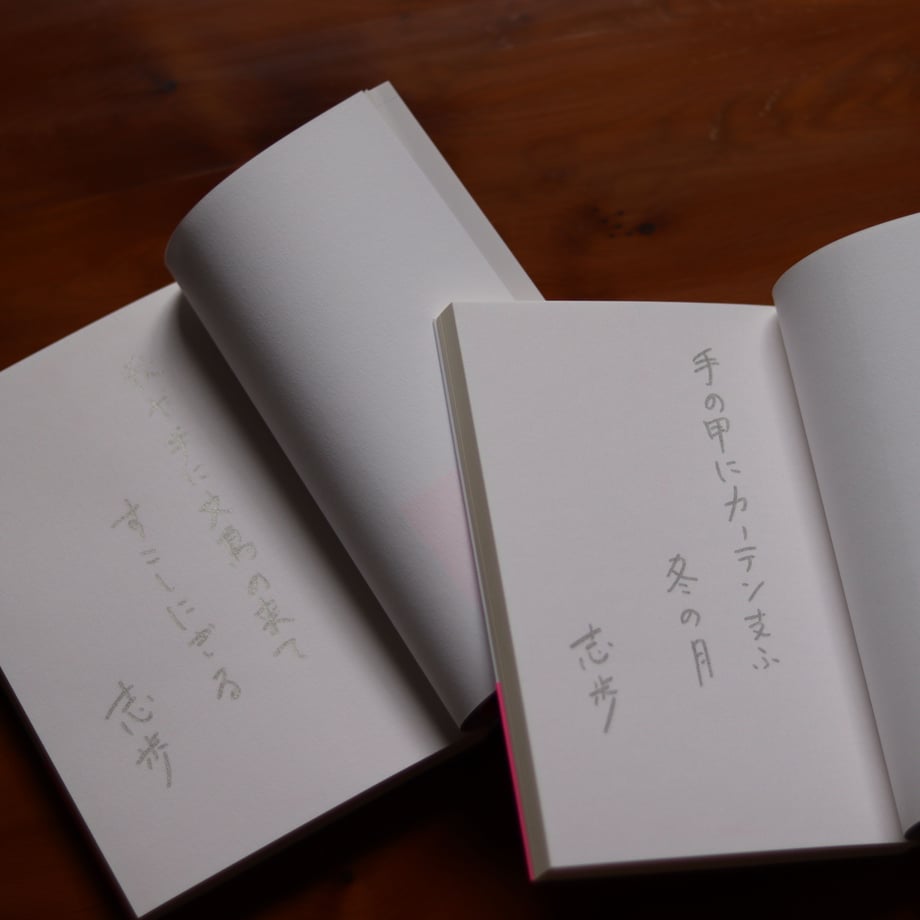 手の甲にカーテン支ふ
冬の月
志歩
に大男の来て
すこしにぎる
志歩